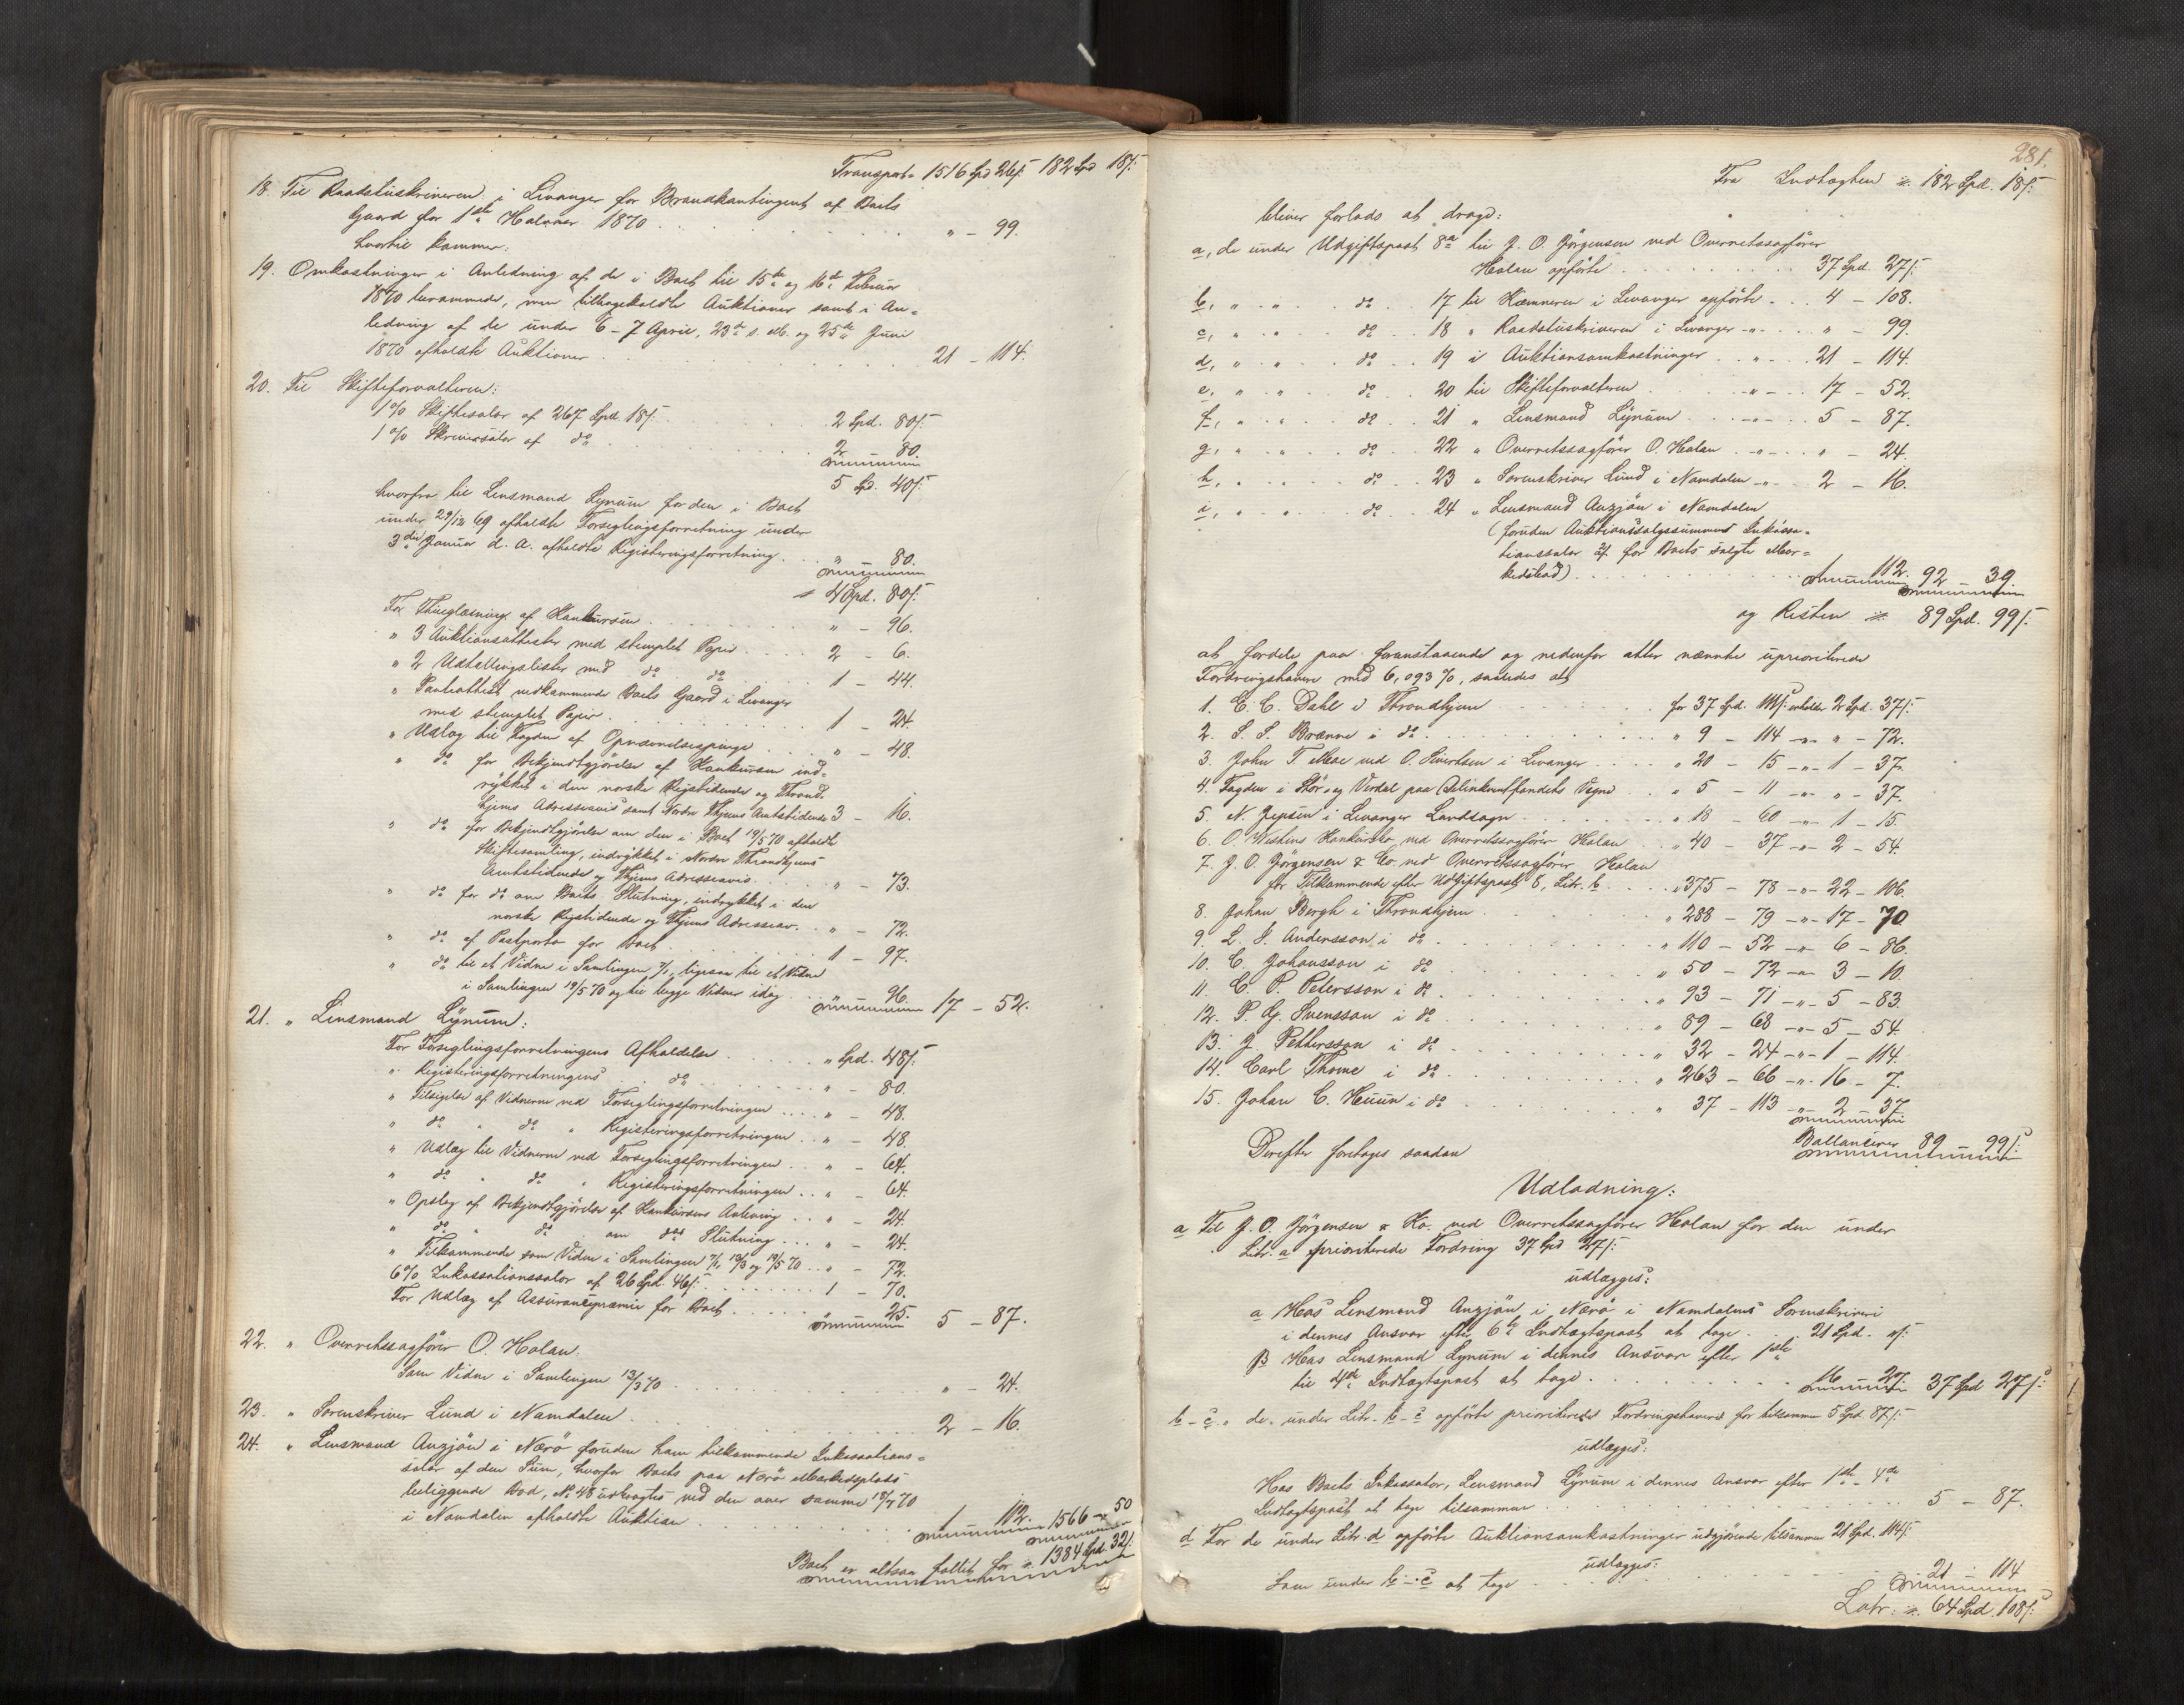 Transport 1516 Spd 26ß 182 Spd 18ß:
18. Til Raadstuskriveren i Levanger for Brandkontingent af Boets
Gaard for 1ste Halvaar 1870 . . . " – 99.
hvortil kommer:
19. Omkostninger i Anledning af de i Boet til 15de og 16de Februar
1870 berammede, men tilbagekaldte Auktioner samt i An-
ledning af de under 6 – 7 April, 23de s. M. og 25de Juni
1870 afholdte Auktioner . . . 21 – 114.
20. Til Skifteforvalteren:
1 % Skiftesalær af 267 Spd. 18ß. . . . 2 Spd. 80ß.
1 % Skriversalær af do . . . 2 80.
5 Spd. 40ß:
hvorfra til Lensmand Lynum for den i Boet
under 29/12 69 afholdte Forseglingsforretning under
3die Januar d. A. afholdte Registeringsforretning . . . " 80.
4 Spd. 80ß:
For Thinglæsning af Konkursen . . . " – 96.
" 3 Auktionsattester med stemplet Papir . . . 2 – 6.
" 2 Udtællingslister med do do . . . 1 – 44.
" Panteattest vedkommende Boets Gaard i Levanger
med stemplet Papir . . . 1 – 24.
" Udlæg til Fogden af Opnævnelsespenge . . . " – 48.
" do for Bekjendtgjørelse af Konkursen ind-
rykket i den norske Rigstidende og Thrond-
hjems Adresseavis samt Nordre Thjems Amtstidende 3 – 16.
" do for Bekjendtgjørelse om den i Boet 19/5 70 afholdte
Skiftesamling, indrykket i Nordre Throndhjems
Amtstidende og Thjems Adresseavis . . . " – 73.
" do for do om Boets Slutning, indrykket i den
norske Rigstidende og Thjems Adresseav. . . " – 72.
" do af Postporto for Boet . . . 1 – 97.
" do til et Vidne i Samlingen 7/1, ligesaa til et Vidne
i Samlingen 19/5 70 og til begge Vidner idag . . . 96. 17 – 52.
21. " Lensmand Lynum:
For Forseglingsforretningens Afholdelse . . . " Spd. 48ß
" Registeringsforretningens do . . . " – 80.
" Tilsigelse af Vidnerne ved Forseglingsforretningen . . . " – 48.
" do " do " Registeringsforretningen . . " – 48.
" Udlæg til Vidnerne ved Forseglingsforretningen . . " – 64.
" do " do " Registeringsforretningen . . " – 64.
" Opslag af Bekjendtgjørelse af Konkursens Aabning . . " – 24.
" do " do om dens Slutning . . . " – 24.
" Tilkommende som Vidne i Samlingen 7/1, 13/3 og 19/5 70 . . " – 72.
6 % Inkassationssalær af 26 Spd. 46ß . . . 1 – 70.
For Udlæg af Assurancepræmie for Boet . . . " 25. 5 – 87.
22. " Overretssagfører O. Holan:
Som Vidne i Samlingen 13/3 70 . . . " – 24.
23. " Sorenskriver Lund i Namdalen . . . 2 – 16.
24. " Lensmand Anzjøn i Nærø foruden ham tilkommende Inkassations-
salær af den Sum, hvorfor Boets paa Nærø Markedsplads
beliggende Bod, No 48 udbragtes ved den over samme 18/7 70
i Namdalen afholdte Auktion . . . 1 112. 1566 – 50
Boet er altsaa fallit for 1384 Spd. 32ß:
281.
Fra Indtægten 182 Spd. 18ß:
bliver forlods at drage:
a, de under Udgiftspost 8a til J. O. Jørgensen ved Overretssagfører
Holan opførte . . . 37 Spd. 27ß:
b, " " do . . 17 til Kæmneren i Levanger opførte . . . 4 – 108.
c, " " do . . 18 " Raadstuskriveren i Levanger –"– . . . " – 99.
d, " " do . . 19 i Auktionsomkostninger . . " . . . 21 – 114.
e, " " do . . 20 til Skifteforvalteren . . –"– . . 17 – 52.
f, " " do . . 21 " Lensmand Lynum . . –"– . . 5 – 87.
g, " " do . . 22 " Overretssagfører O. Holan . –"– . . " – 24.
h, " " do . . 23 " Sorenskriver Lund i Namdalen –"– . . 2 – 16.
i, " " do . . 24 " Lensmand Anzjøn i Namdalen
(foruden Auktionssalgssummens Inkassa-
tionssalær af for Boets solgte Mar-
kedsbod) . . . 1 112. 92 – 39.
og Resten 89 Spd. 99ß:
at fordele paa foranstaaende og nedenfor atter nævnte uprioriterede
Fordringshavere med 6,093 %, saaledes at
1. E. C. Dahl i Throndhjem . . . for 37 Spd. 111ß: erholder 2 Spd. 37ß:
2. S. S. Brænne i do . . . " 9 – 114 –"– " – 72.
3. John T. Moe ved O. Sivertsen i Levanger . . . " 20 – 15 –"– 1 – 37.
4. Fogden i Stør- og Verdal paa Delinkventfondets Vegne . . " 5 – 11 –"– " – 37.
5. N. Jepsen i Levanger Landsogn . . . " 18 – 60 –"– 1 – 15.
6. O. Wistens Konkursbo ved Overretssagfører Holan . . " 40 – 37 –"– 2 – 54.
7. J. O. Jørgensen & Co. ved Overretssagfører Holan
for Tilkommende efter Udgiftspost 8, Litr. b . . . " 375 – 78 –"– 22 – 106
8. Johan Bergh i Throndhjem . . . " 288 – 79 –"– 17 – 70
9. L. J. Andersson i do . . . " 110 – 52 –"– 6 – 86.
10. C. Johansson i do . . . " 50 – 72 –"– 3 – 10.
11. C. P. Petersson i do . . . " 93 – 71 –"– 5 – 83.
12. P. G. Svensson i do . . . " 89 – 68 –"– 5 – 54.
13. J. Pettersson i do . . . " 32 – 24 –"– 1 – 114.
14. Carl Thome i do . . . " 263 – 66 –"– 16 – 7.
15. Johan C. Huun i do . . . " 37 – 113 –"– 2 – 37.
Ballancerer 89 – 99ß:
Derefter foretages saadan
Udlodning:
a Til J. O. Jørgensen & Ko. ved Overretssagfører Holan for den under
Litr. a prioriterede Fordring 37 Spd 27ß:
udlægges:
α Hos Lensmand Anzjøn i Nærø i Namdalens Sorenskriveri
i dennes Ansvar efter 6te Indtægtspost at tage . . . 21 Spd. "ß:
β Hos Lensmand Lynum i dennes Ansvar efter 1ste
til 4de Indtægtspost at tage . . . 16 27. 37 Spd 27ß:
b – c " de under Litr. b – c opførte prioriterede Fordringshavere for tilsammen 5 Spd. 87ß:
udlægges:
Hos Boets Inkassator, Lensmand Lynum i dennes Ansvar efter 1ste – 4de
Indtægtspost at tage tilsammen . . . 5 – 87.
d For de under Litr. d opførte Auktionsomkostninger udgjørende tilsammen 21 Spd. 114ß:
udlægges:
Som under b – c at tage . . . 21 – 114
Latr. 64 Spd. 108ß: